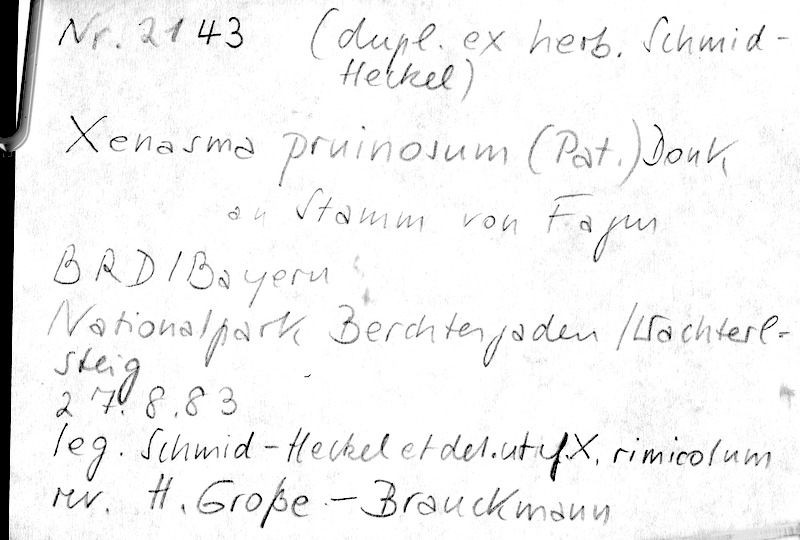 Nr. 2143 (dupl. ex herb. Schmid-
Heckel)
Xenasma pruinosum (Pat.) Donk
an Stamm von Fagus
BRD/Bayern
Nationalpark Berchtesgaden /Wachterl-
steig
27.8.83
leg. Schmid-Heckel et det. ut cf. X. rimicolum
rev. H. Große-Brauckmann